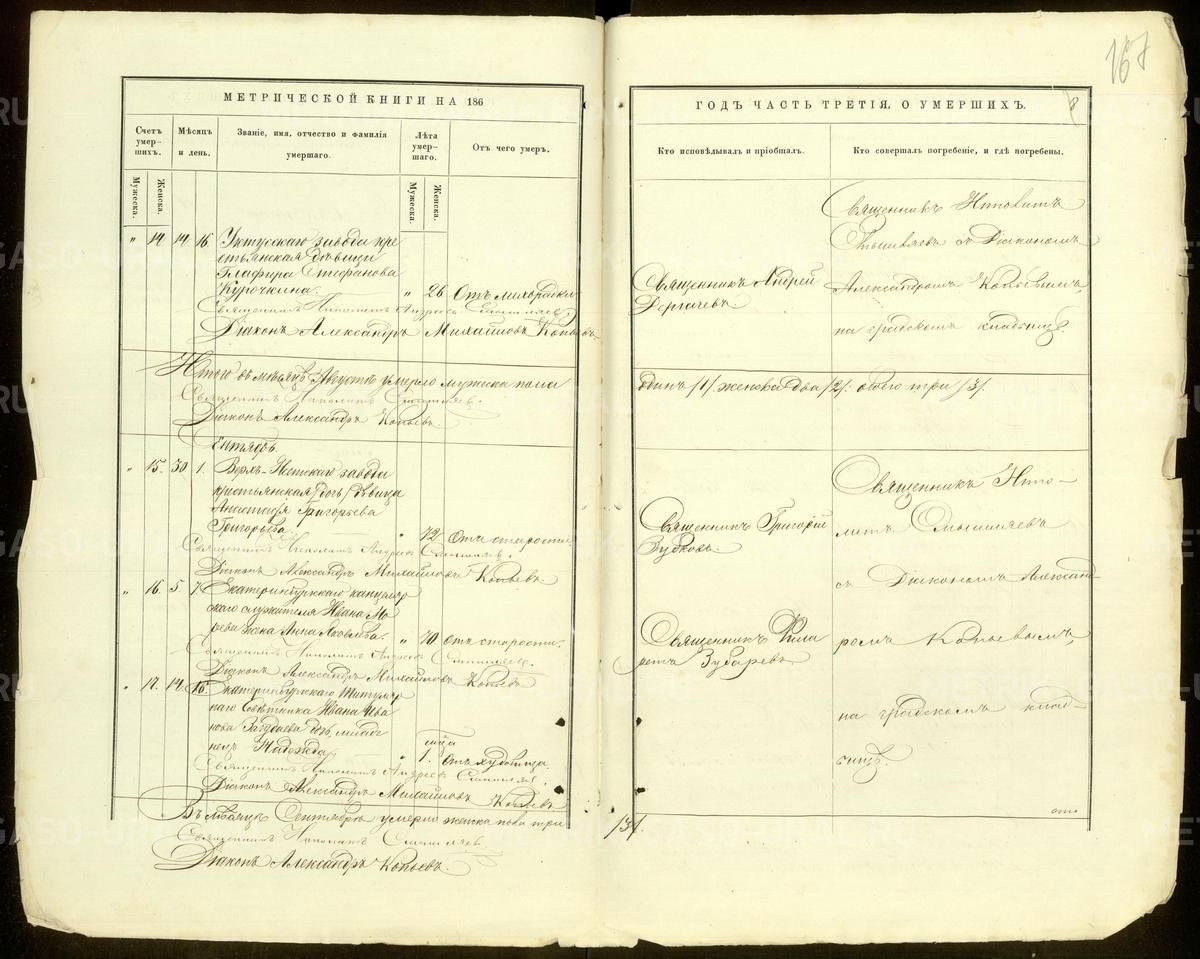 167
МЕТРИЧЕСКОЙ КНИГИ НА 186
Счетъ умер-шихъ.
Мѣсяцъ и день.
Званіе, имя, отчество и фамилія умершаго.
Лѣта умер-шаго.
Отъ чего умеръ.
Мужеска.
Женска.
Мужеска.
Женска.
" 14 14 16 Уктусскаго завода кре
стьянская дѣвица
Глафира Стефанова
Курочкина. " 26 Отъ лихорадки
Священникъ Ипполитъ Андреевъ Смышляевъ.
Діаконъ Александръ Михайловъ Копьевъ
Итого въ мѣсяцѣ Августѣ умерло мужеска пола
Священникъ Ипполитъ Смышляевъ.
Діаконъ Александръ Копьевъ.
Сентябрь.
" 15. 30 1. Верхъ-Исетскаго завода
крестьянская дочь дѣвица
Анастасія Григорьева
Григорьева. " 72. отъ старости
Священникъ Ипполитъ Андреевъ Смышляевъ.
Діаконъ Александръ Михайловъ Копьевъ.
" 16. 5 7. Екатеринбургскаго канцеляр
скаго служителя Ивана
жена Анна Яковлева. " 70 отъ старости.
Священникъ Ипполитъ Андреевъ Смышляевъ.
Діаконъ Александръ Михайловъ Копьевъ
" 17. 14. 16. Екатеринбургскаго Титуляр
наго Совѣтника Ивана Ива
нова дочь, младе
нецъ Надежда. " 1.
Священникъ Ипполитъ Андреевъ Смышляевъ.
Діаконъ Александръ Михайловъ Копьевъ
Въ мѣсяцѣ Сентябрѣ умерло женска пола три
Священникъ Ипполитъ Смышляевъ
Діаконъ Александръ Копьевъ.
8
ГОДЪ ЧАСТЬ ТРЕТІЯ, О УМЕРШИХЪ.
Кто исповѣдывалъ и пріобщалъ.
Кто совершалъ погребеніе, и гдѣ погребены.
Священникъ Андрей
Дергачевъ.
Священникъ Ипполитъ
Смышляевъ съ Діакономъ
Александромъ Копьевымъ,
на градскомъ кладбищѣ.
одинъ /1/ женска два /2/: обоего три /3/.
Священникъ Григорій
Зубковъ.
Священникъ Фила
ретъ Зубаревъ
Священникъ Иппо-
литъ Смышляевъ
съ Діакономъ Александ-
ромъ Копьевымъ,
на градскомъ клад-
бищѣ.
/3/.